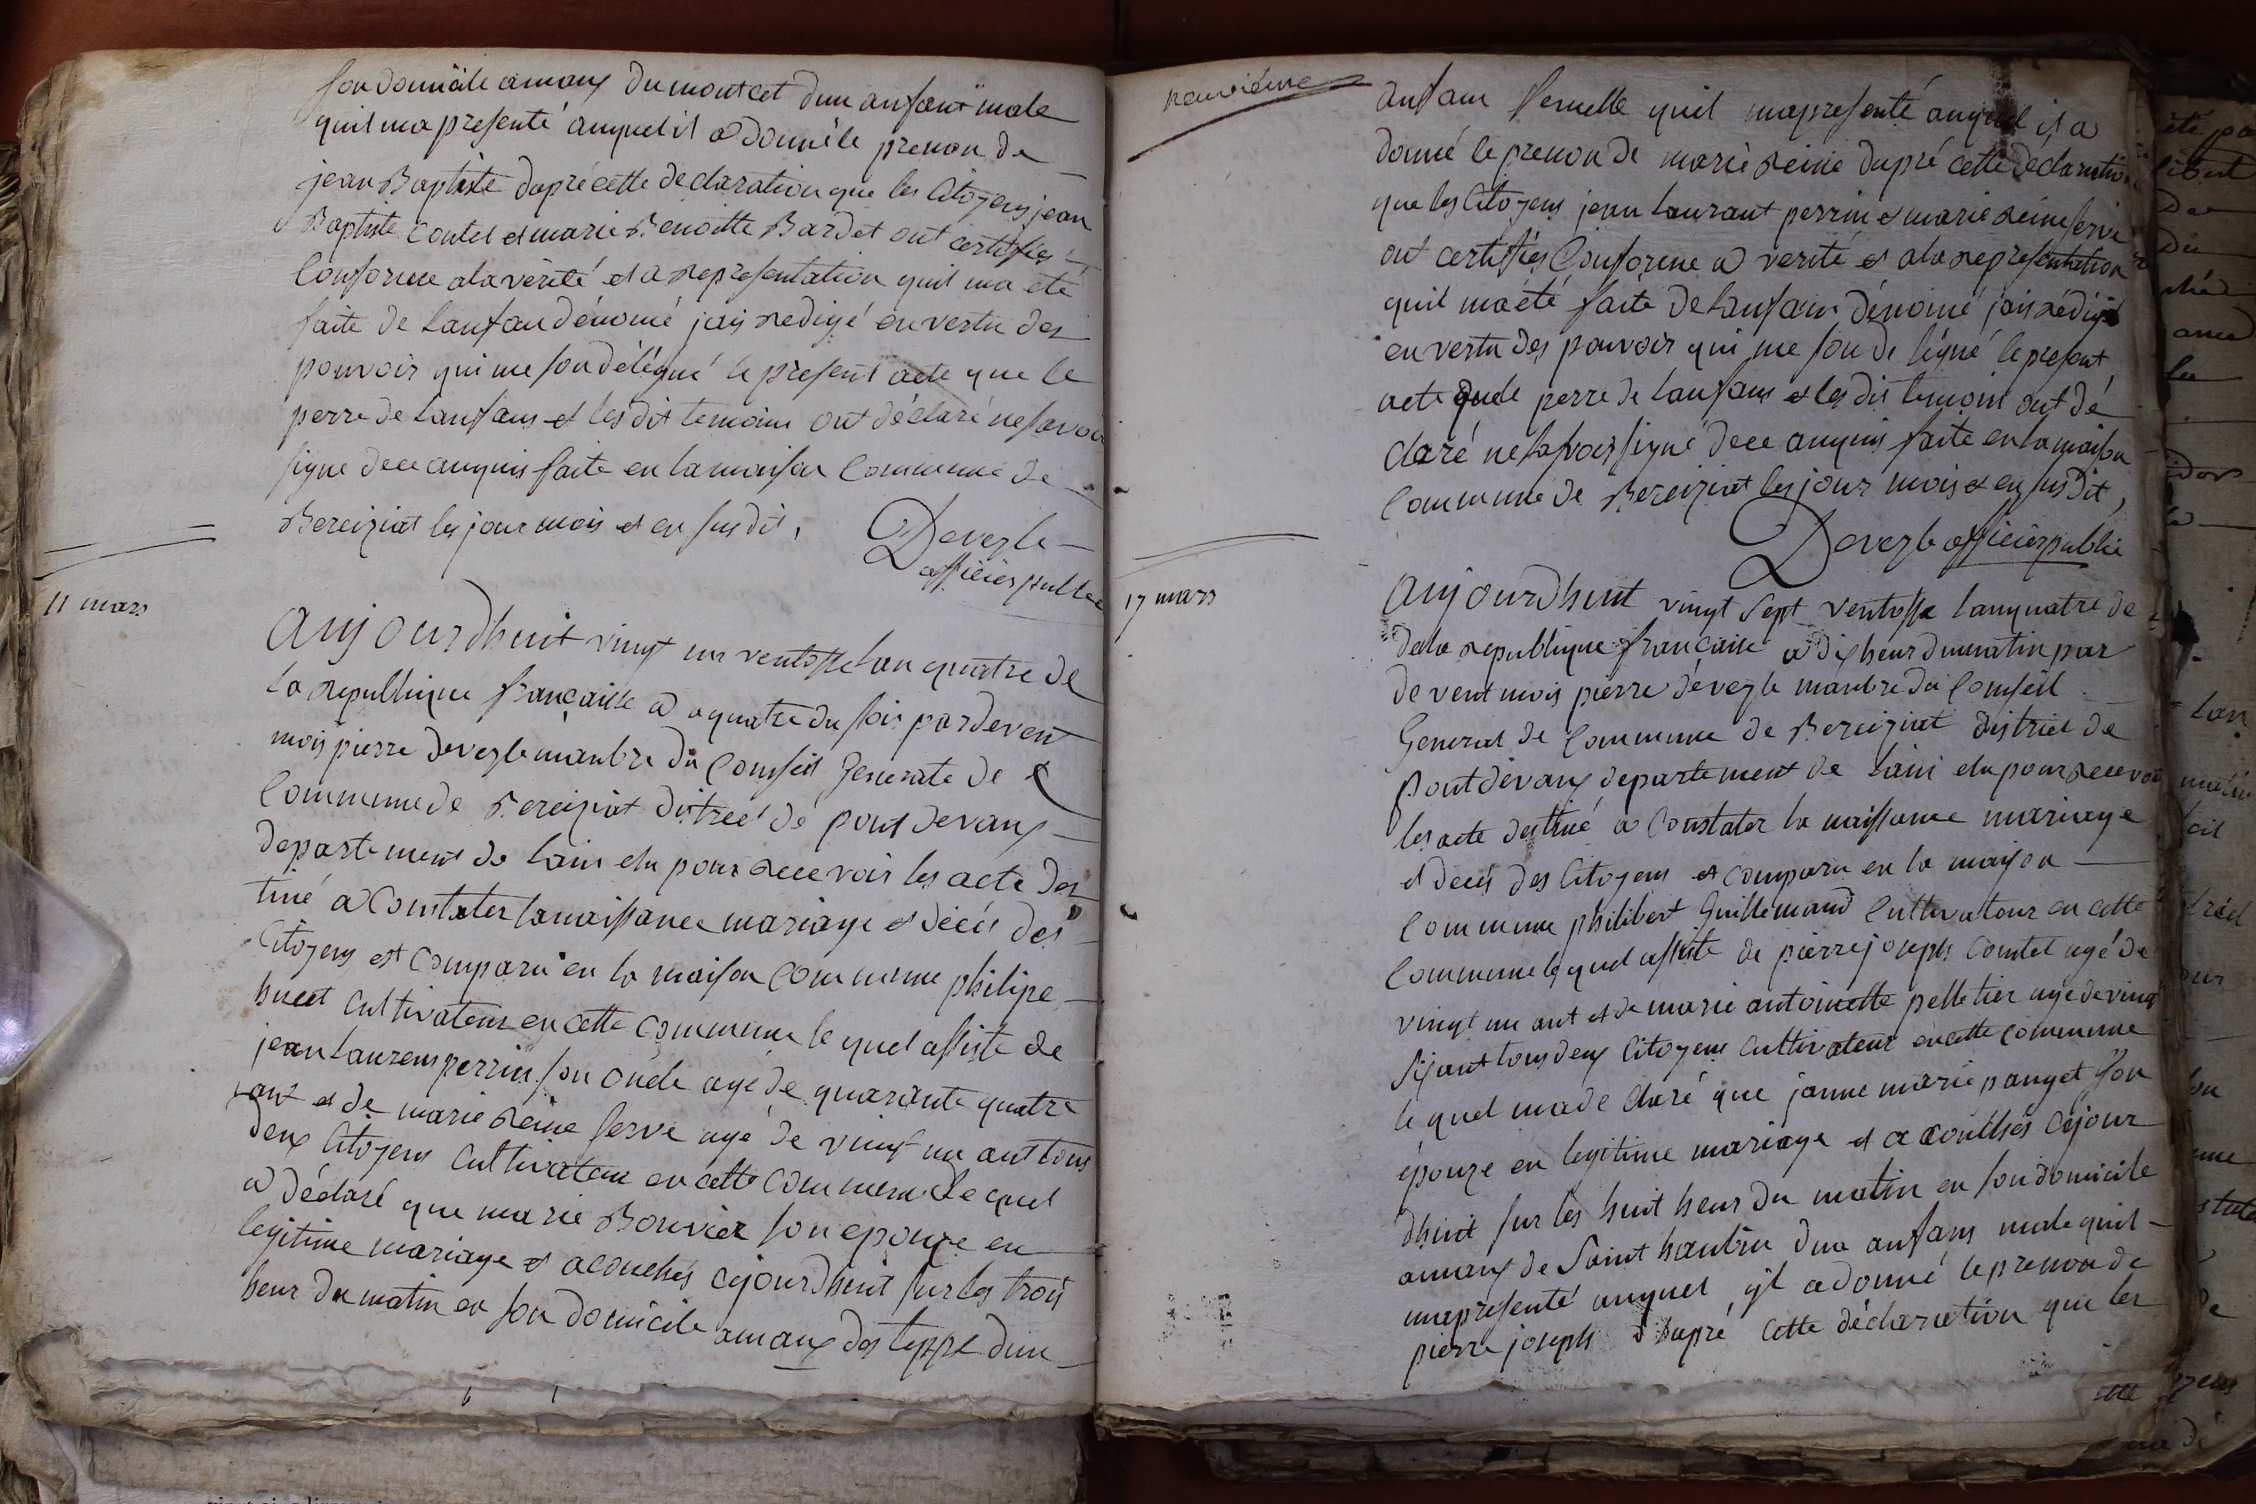 son domicile amaux du montcet dun anfant male
quil ma presenté auquel il a donné le prenon de
jean Baptiste dapré cette declaration que les Citoyens jean
Baptiste Contet et marie Benoitte Bardet ont certifiés
Conforme a la vérité et a representation quil ma été
faite de lanfan dénomé jais redigé en vertu des
pouvoir qui me son délégué le present acte que le
perre de lanfans et les dit temoins ont déclaré ne savoir
signe de ce anquis faite en la maison Commune de
Bereiziat les jour mois et en sus dit,
Devegle
officier public
11 mars
Aujourdhuit vingt un ventosse lan quatre de
la republique françaisse a quatre du soir par devent
mois pierre devegle manbre du Conseil Generale de
Commune de Bereiziat district de pont devaux
departement de lain elu pour recevoir les acte des
tiné a Constater la naissance mariage et décés des
Citoyens est comparu en la maison commune philipe
huet cultivateur en cette commune le quel assiste de
jean laurens perrin son oncle agé de quarante quatre
ant et de marie reine serve agé de vingt un ant tous
deux Citoyens cultivateur en cette commune le quel
a déclaré que marie Bouvier son epouze en
legitime mariage et acouchés cejourdhuit sur les trois
heur du matin en son domicile amaux des teppe dun
neuvième
anfan femelle quil mapresenté auquel il a
donné le prenon de marie reine dapré cette déclaration
que les Citoyens jean laurant perrin et marie reine serve
ont certifiés Conforme a verité et a la representation
quil ma été faite de lanfans dénomé jais rédigé
en vertu des pouvoir qui me son délégué le present
acte que le perre de lanfans et les dit temoins ont dé
claré ne savoir signé de ce anquis faite en la maison
Commune de Bereiziat les jour mois et en sus dit,
Devegle officier public
17 mars
Aujourdhuit vingt sept ventosse lanquatre de
de la republique françaisse a dix heur du matin par
devent mois pierre dévegle manbre du Conseil
General de Commune de Bereiziat district de
Pontdevaux departement de lain elu pour recevoir
les acte destiné a Constater la naissance mariage
et decés des Citoyens est comparu en la maison
Commune philibert Guillemaud Cultivateur en cette
Commune le quel assiste de pierre joseph Contet agé de
vingt un ant et de marie antoinette pelletier agé de vingt
six ant tous deux Citoyens cultivateur en cette commune
le quel ma declaré que janne marie panget son
épouze en legitime mariage et acouchés cejour
dhuit sur les huit heur du matin en son domicile
amaux de Saint haubin dun anfans male quil
mapresenté auquel il a donné le prenon de
pierre joseph dapré cette déclaration que les